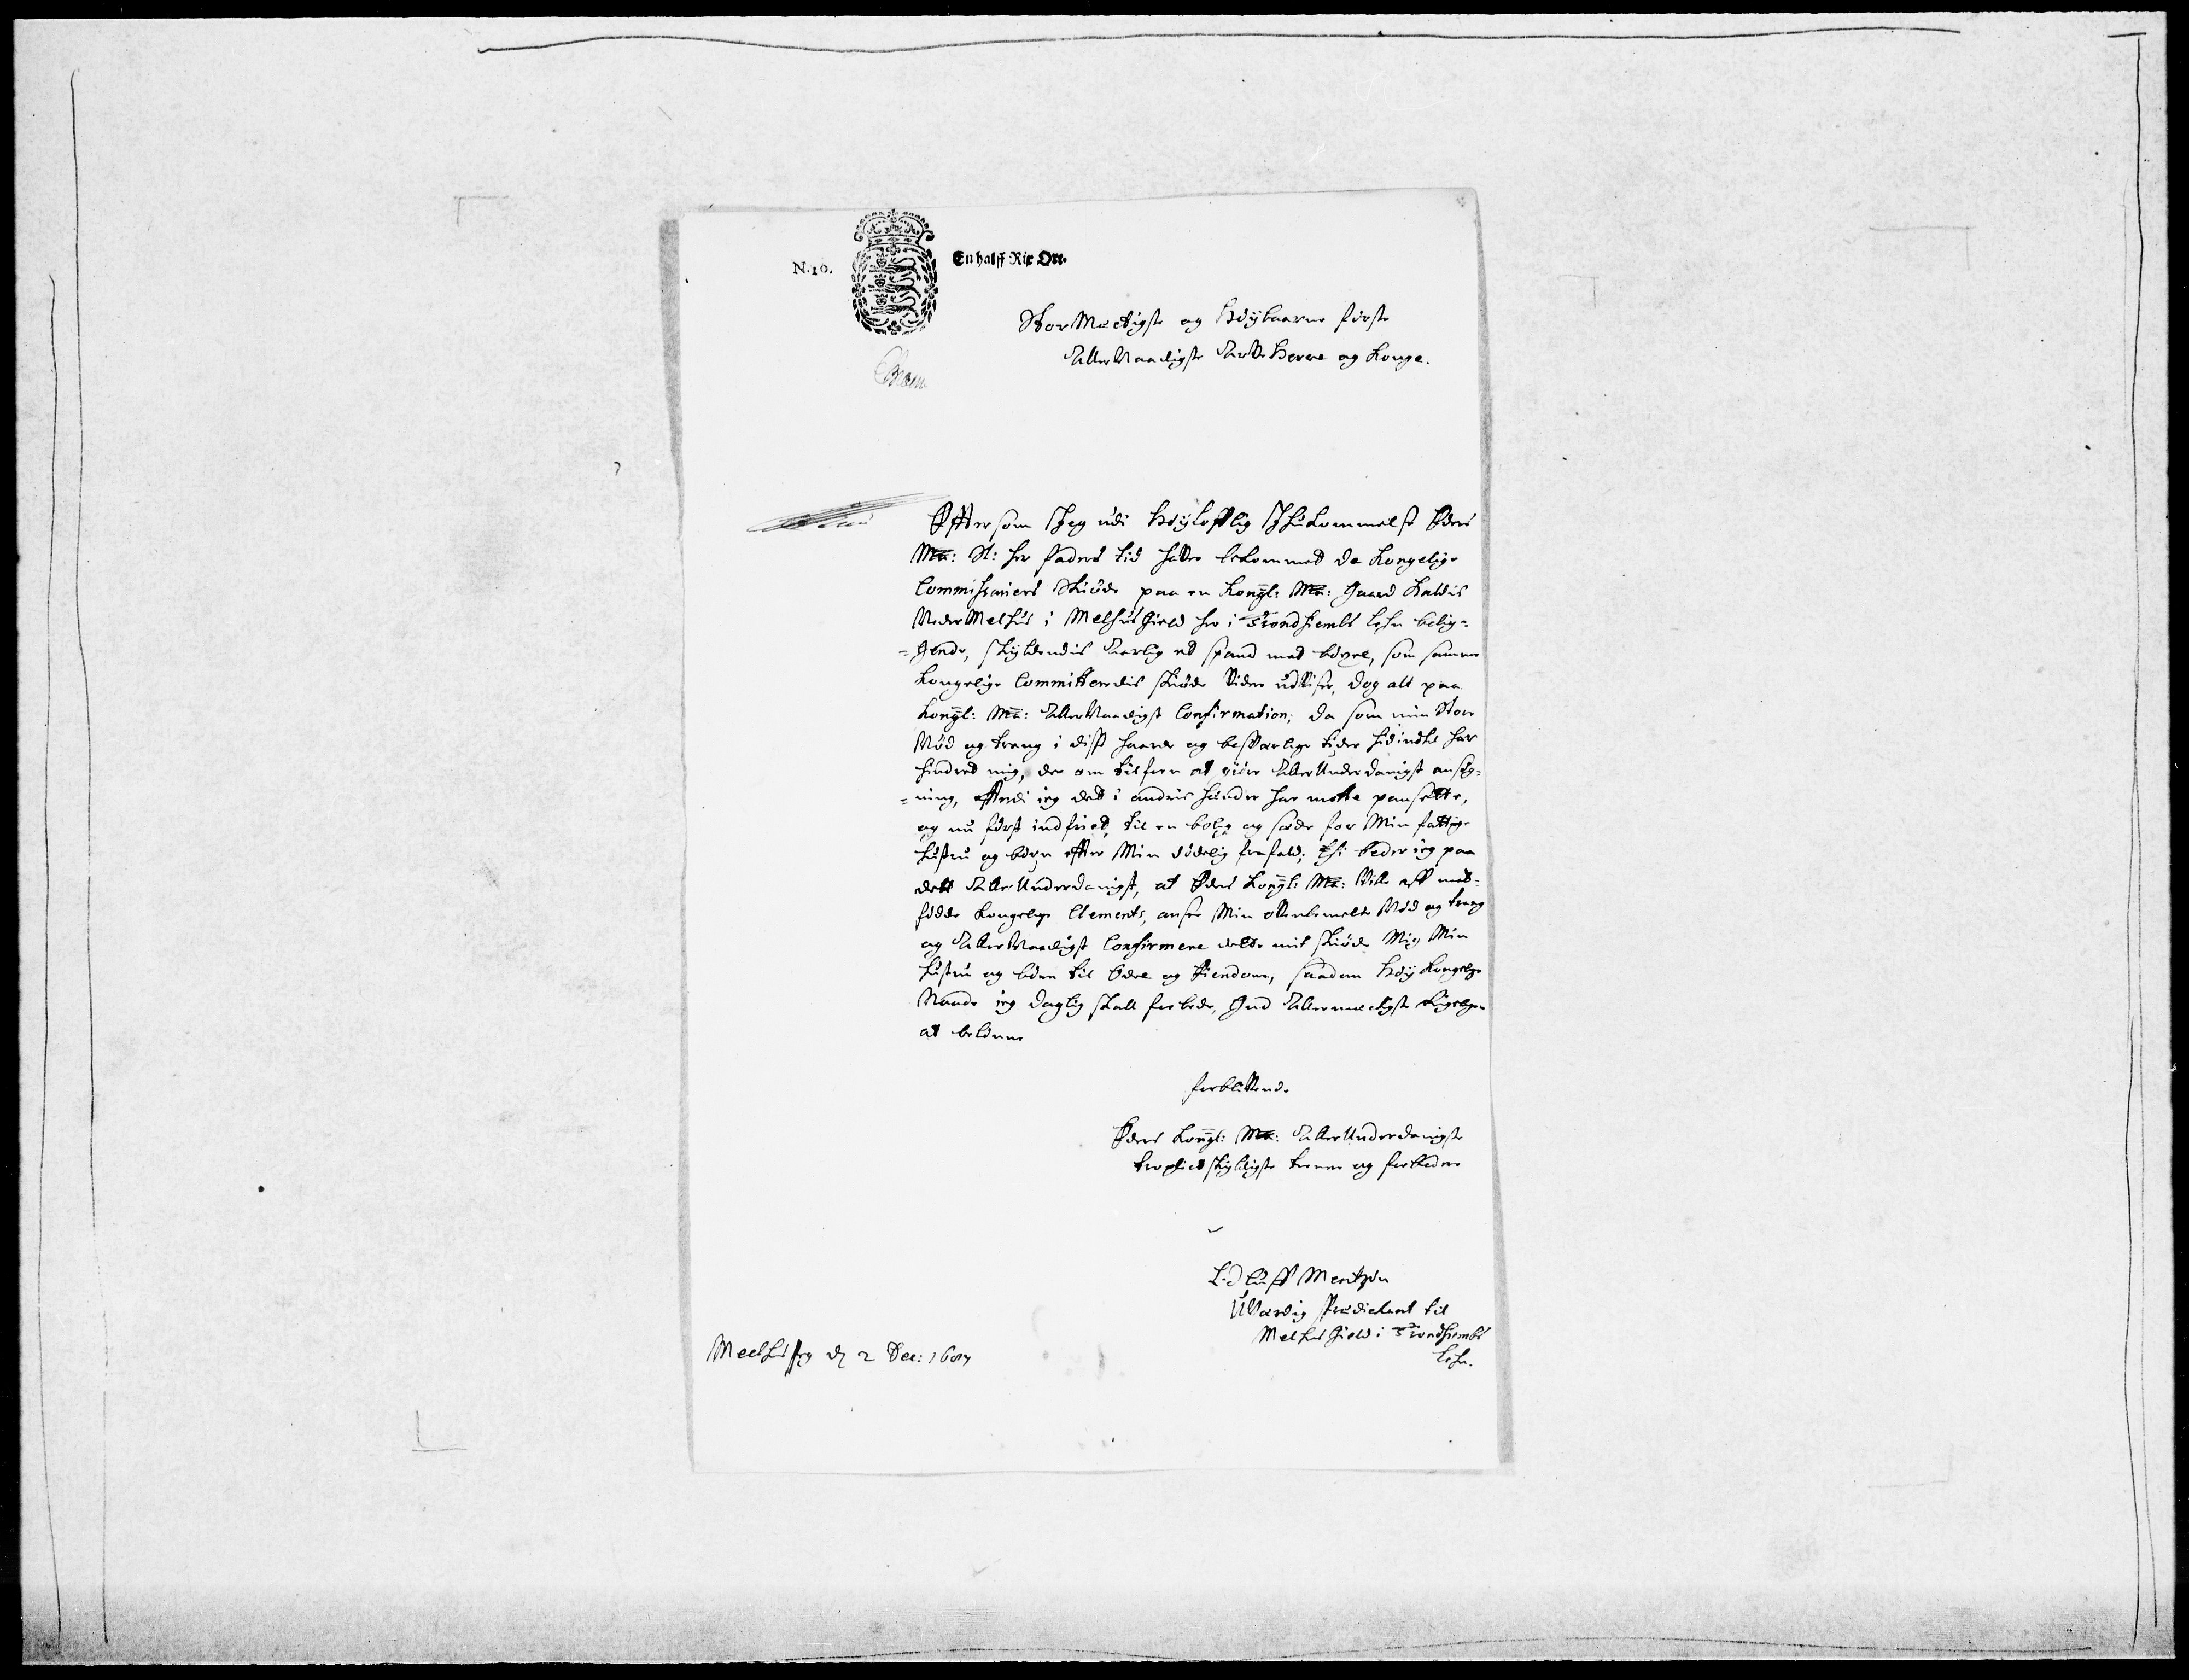 N. 10.
En halff Rix Ort.
StorMectigste og Höÿbaarne förste
AllerNaadigste ArffveHerre og Konge.
Efftersom Jeg udi Höÿlofflig Ihukommelse Eders
Ma: S: her faders tid haffver bekommet de Kongelige
Commissariers Skiöde paa en Kongl: Ma: Gaard Kaldis
NederMelhus i Melhus Gield her i Trondhiembs Lehn belig=
=gende, skÿldendis Aarlig et spand med böxel, som samme
Kongelige Committeredis skiöde Videre udViser, dog alt paa
Kongl: Ma: AllerNaadigst Confirmation; da som min Stor
Nöd og trang i disse haarde og besverlige tider hidindtil har
hindret mig, der om tilforn at giöre AllerUnderdanigst ansög=
=ning, efftersdi jeg dett i andris hænder har motte pansætte,
og nu först indfriet, til en bolig og sæde for Min fattige
hustru og börn effter Min dödelig frafald; Thi beder jeg paa
dett AllerUnderdanigst, at Eders Kongl: Ma: Ville aff med=
födde Kongelige Clements, ansee Min offvenbemelte Nöd og trang
og AllerNaadigst Confirmere dette mit skiöde Mig Min
hustru og börn til Odel og Eiendom, saadan Höÿ Kongelige
Naade jeg daglig skall forbede, Gud Allermectigste Rigeligen
at belönne
forbliffvende
Eders Kongl: Ma: AllerUnderdanigste
tropligtskÿldigste tienere og forbedere
Oluff Mentzön
UVærdig Prædicant til
Melhus Gield i Trondhiembs
Lehn.
Meelhus Prg d. 2 Dec: 1687